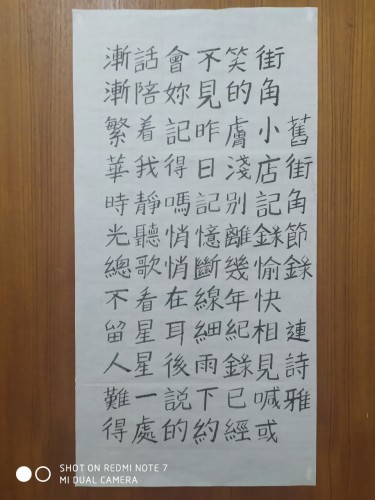 舊街角節錄 連詩雅
街角小店記錄愉快相見喊或
笑的膚淺別離幾年紀錄已經
不見昨日記憶斷線細雨下約
會妳記得嗎悄悄在耳後説的
話陪着我靜聽歌看星星一處
漸漸繁華時光總不留人難得
SHOT ON REDMI NOTE 7
MI DUAL CAMERA